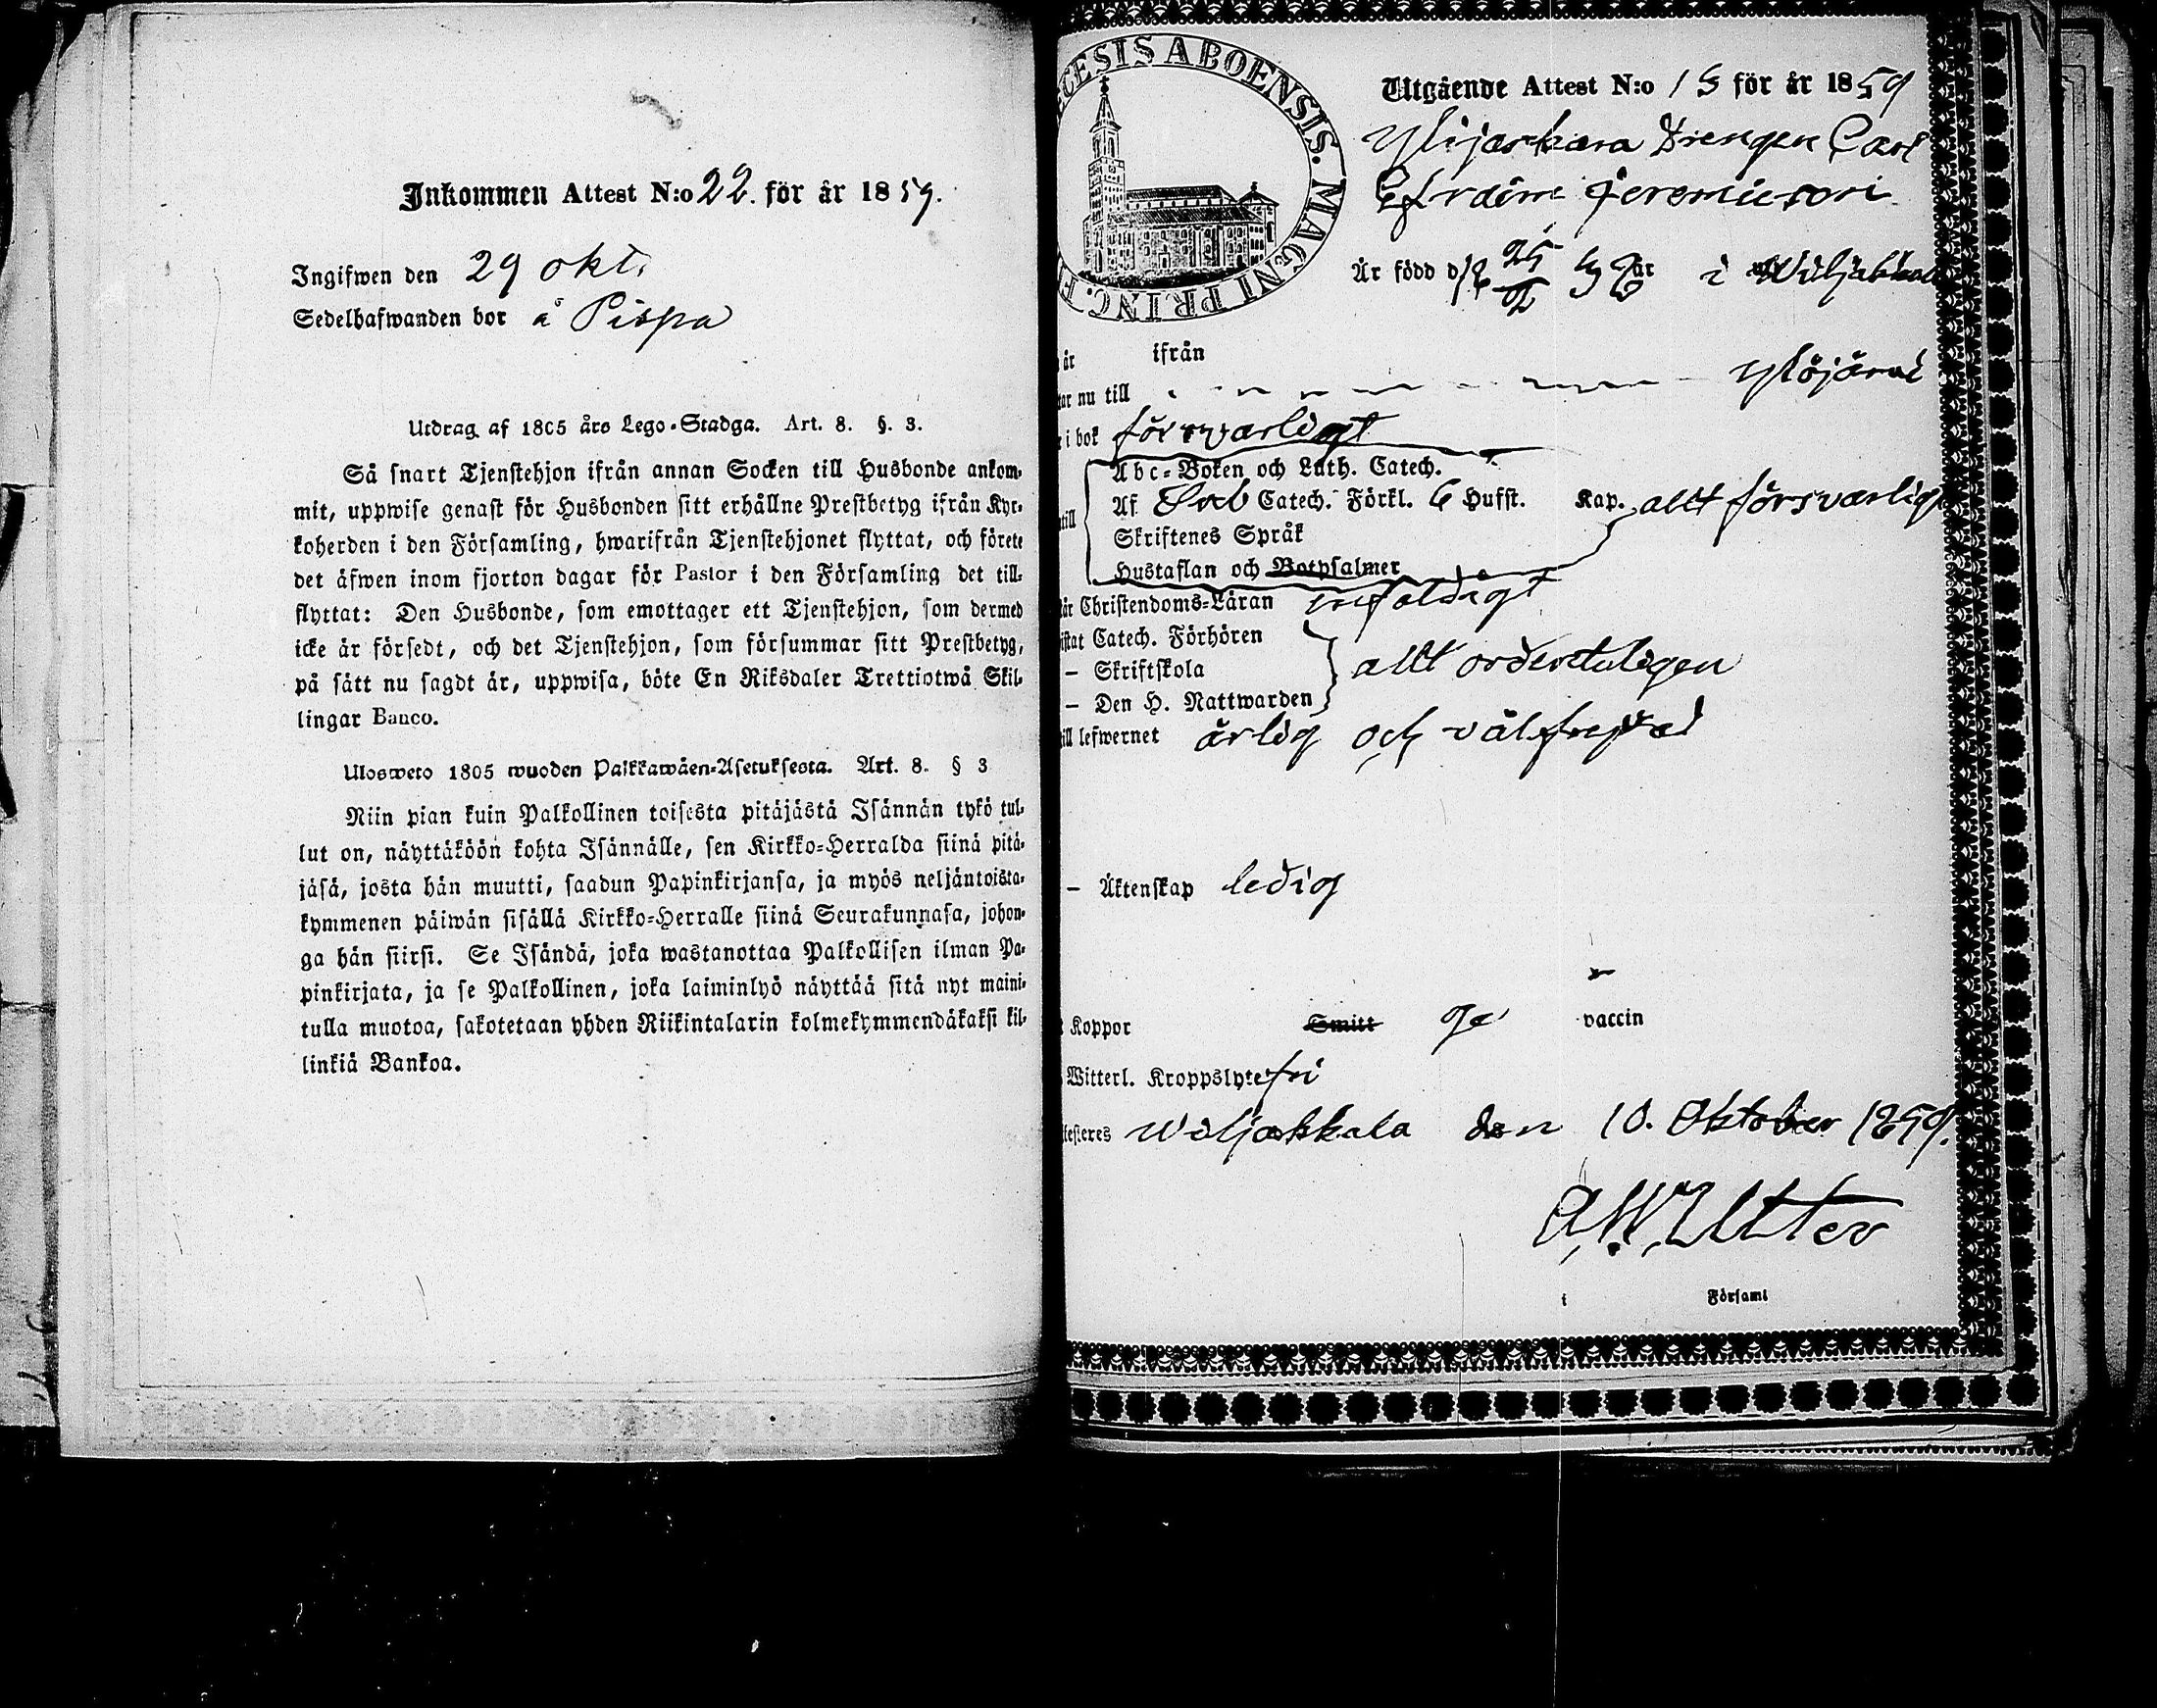 Inkommen Attest N:o 22. för år 1859.
Ingifwen den 29 okt.
Sedelhafwanden bor å Pispa
Utdrag af 1805 års Lego-Stadga. Art. 8. §. 3.
Så snart Tjenstehjon ifrån annan Socken till Husbonde ankom-
mit, uppwise genast för Husbonden sitt erhållne Prestbetyg ifrån Kyr-
koherden i den Församling, hwarifrån Tjenstehjonet flyttat, och förete
det äfwen inom fjorton dagar för Pastor i den Församling det till-
flyttat: Den Husbonde, som emottager ett Tjenstehjon, som dermed
icke är försedt, och det Tjenstehjon, som försummar sitt Prestbetyg,
på sätt nu sagdt är, uppwisa, böte En Riksdaler Trettiotwå Skil-
lingar Banco.
Ulosweto 1805 wuoden Palkkawäen-Asetuksesta. Art. 8. § 3
Niin pian kuin Palkollinen toisesta pitäjästä Isännän tykö tul-
lut on, näyttäköön kohta Isännälle, sen Kirkko-Herralda siinä pitä-
jäsä, josta hän muutti, saadun Papinkirjansa, ja myös neljäntoista-
kymmenen päiwän sisällä Kirkko-Herralle siinä Seurakunnasa, johon-
ga hän siirsi. Se Isändä, joka wastanottaa Palkollisen ilman Pa-
pinkirjata, ja se Palkollinen, joka laiminlyö näyttää sitä nyt maini-
tulla muotoa, sakotetaan yhden Riikintalarin kolmekymmendäkaksi kil-
linkiä Bankoa.
ESIS ABOENSIS. MAGNI PRINC. F
Utgående Attest N:o 13 för år 1859
Ylijaskara Drengen Carl
Efraim Jeremiesson
Är född d 18 25 32 år i Wiljakkala
år ifrån
ar nu till Ylöjärvi
i bok försvarligt
Abc-Boken och Luth. Catech.
Af Catech. Förkl. 6 Hufst. Kap. allt försvarligt
till
Skriftenes Språk
Hustaflan och Botpsalmer
år Christendoms-Läran enfaldigt
istat Catech. Förhören
– Skriftskola allt ordenteligen
– Den H. Nattwarden
ill lefwernet ärlig och välfrejdad
– Äktenskap ledig
Koppor Smitt ge vaccin
Witterl. Kroppslyte fri
testeres Wiljakkala den 10. Oktober 1859.
A. W. Utter
i Församl